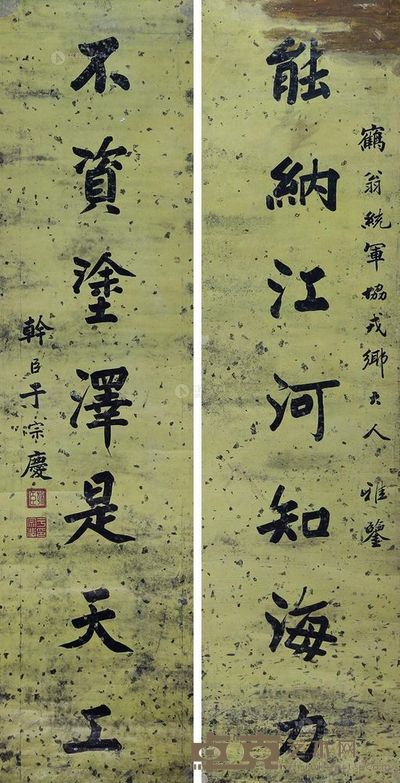 鶴翁統軍協戎鄉大人 雅鑒
能納江河知海力
不資塗澤是天工
幹臣于宗慶